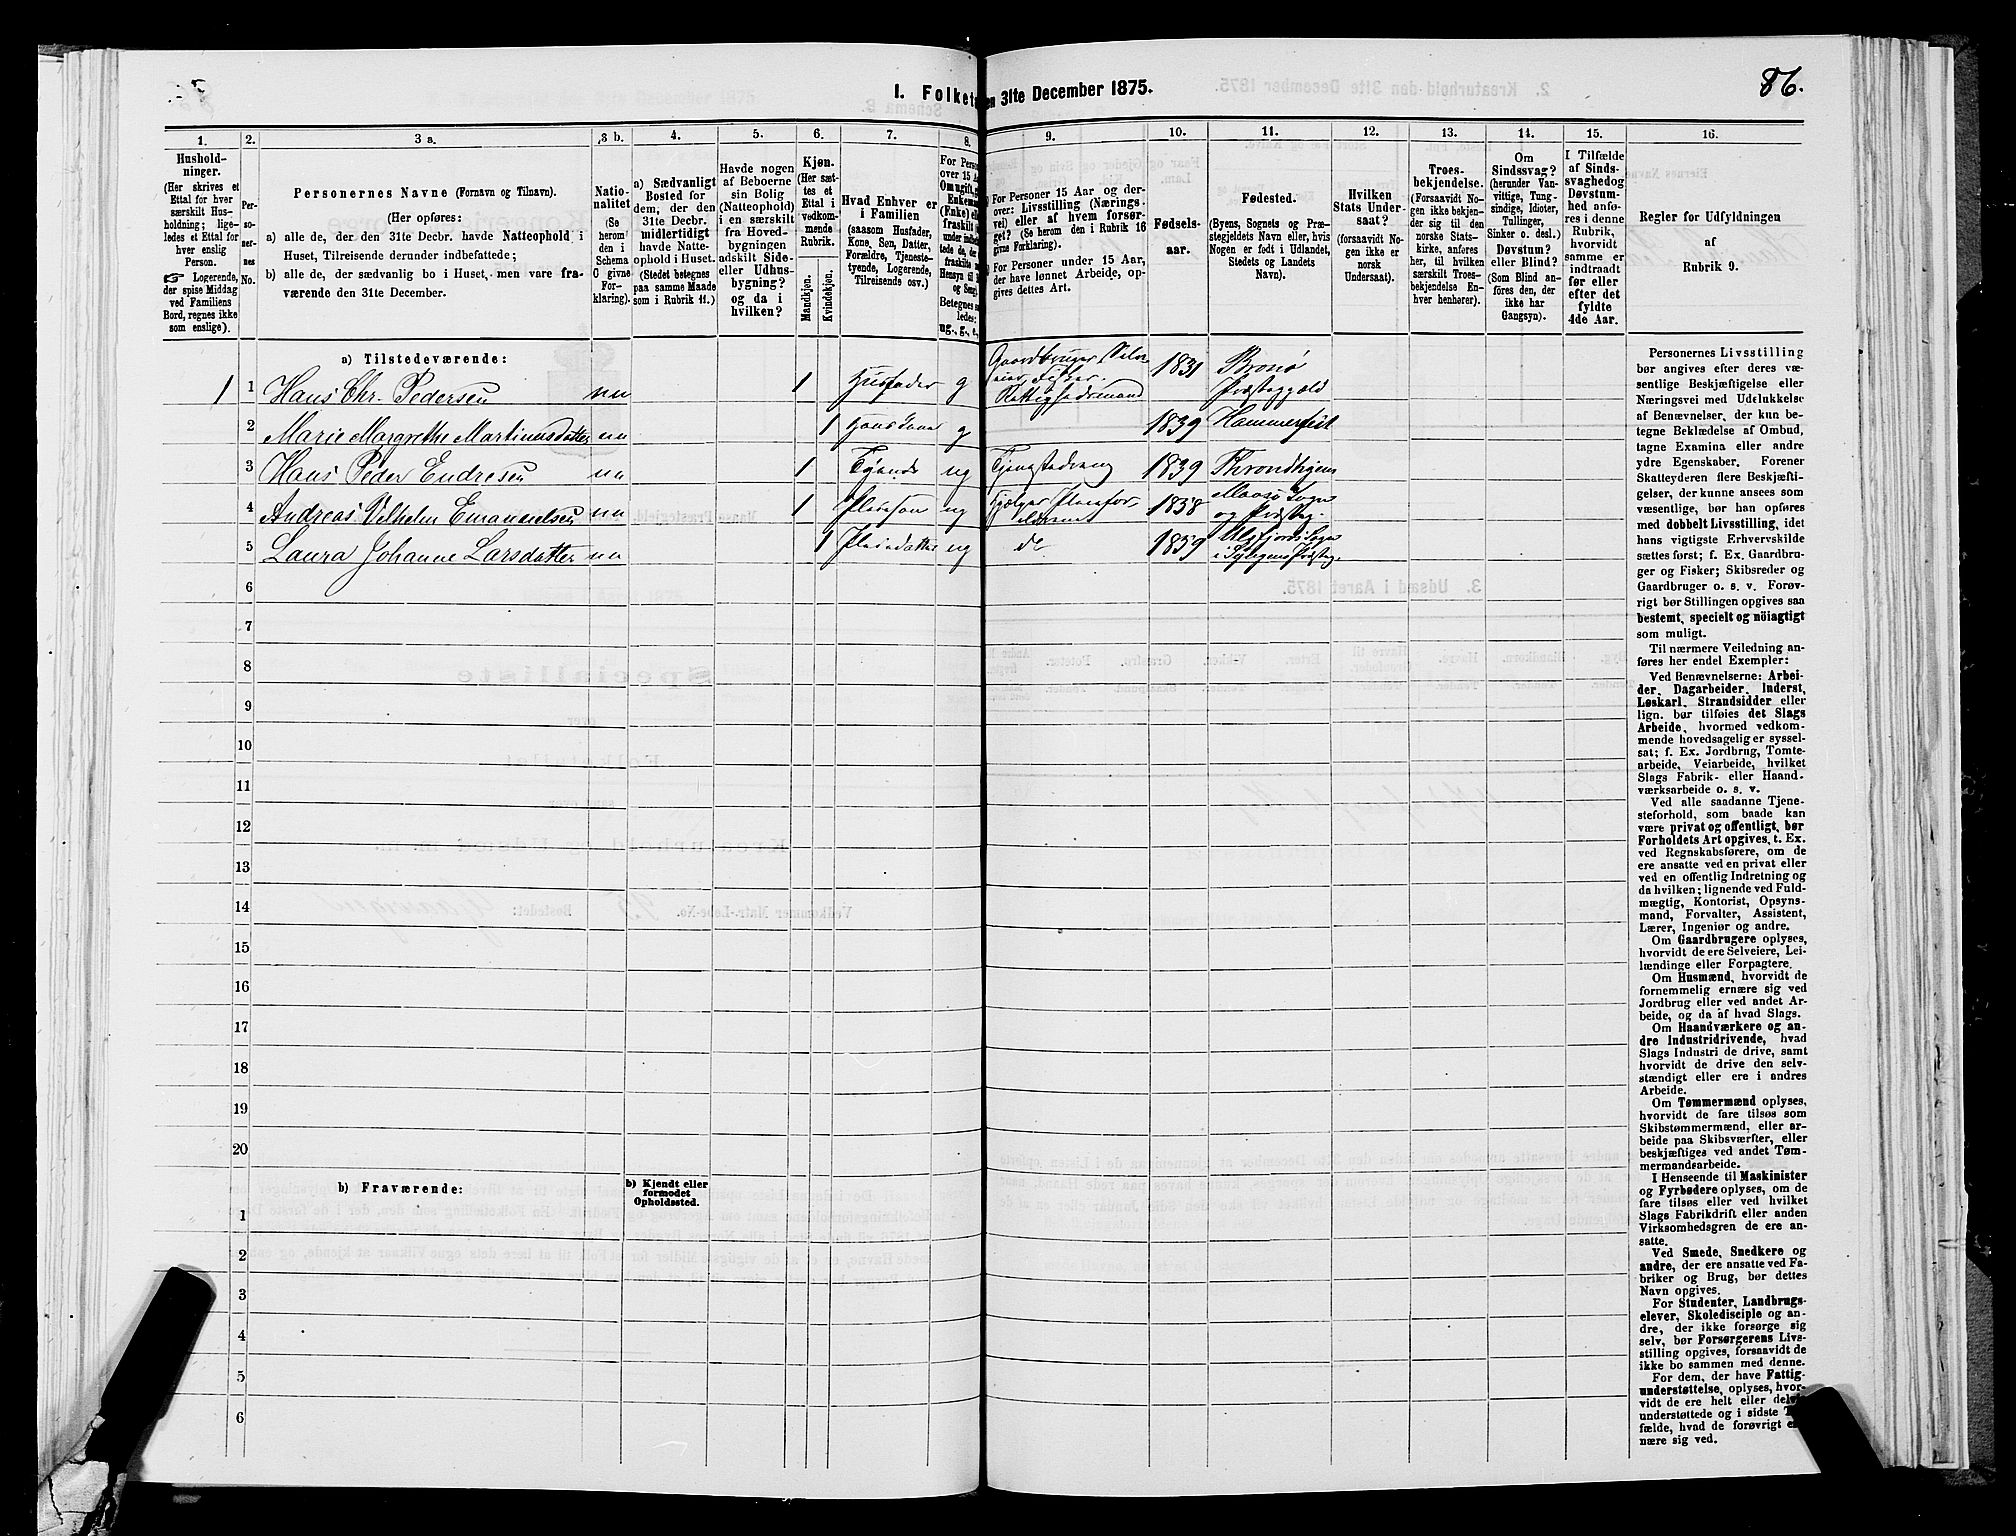 1. Folketæ
en 31te December 1875.
86.
1.
2.
3 a.
3 b.
4.
5.
6.
7.
8.
9.
10.
11.
12.
13.
14.
15.
16.
Hushold-
ninger.
(Her skrives et
Ettal for hver
særskilt Hus-
holdning; lige-
ledes et Ettal for
hver enslig
Person.
☞ Logerende,
der spise Middag
ved Familiens
Bord, regnes ikke
som enslige).
Per-
so-
ner-
nes
No.
Personernes Navne (Fornavn og Tilnavn).
(Her opføres:
a) alle de, der den 31te Decbr. havde Natteophold i
Huset, Tilreisende derunder indbefattede;
b) alle de, der sædvanlig bo i Huset, men vare fra-
værende den 31te December.
Natio-
nalitet
(Se
herom
den i
Schema
C givne
For-
klaring).
a) Sædvanligt
Bosted for
dem, der den
31te Decbr.
midlertidigt
havde Natte-
ophold i Huset.
(Stedet betegnes
paa samme Maade
som i Rubrik 11.)
Havde nogen
af Beboerne
sin Bolig
(Natteophold)
i en særskilt
fra Hoved-
bygningen
adskilt Side-
eller Udhus-
bygning?
og da i
hvilken?
Kjøn.
(Her sæt-
tes et
Ettal i
vedkom-
mende
Rubrik.
Mandkjøn.
Kvindekjøn.
Hvad Enhver er
i Familien
(saasom Husfader,
Kone, Søn, Datter,
Forældre, Tjeneste-
tyende, Logerende,
Tilreisende osv.)
For Person
over 15 A
Om ugift,
Enkem
(Enke)
fraskilt
Betegnes s
ledes:
ug., g., e.,
For Personer 15 Aar og der-
over: Livsstilling (Nærings-
vei) eller af hvem forsør-
get? (Se herom den i Rubrik 16
givne Forklaring).
For Personer under 15 Aar,
der have lønnet Arbeide, op-
gives dettes Art.
Fødsels-
aar.
Fødested.
(Byens, Sognets og Præ-
stegjeldets Navn eller, hvis
Nogen er født i Udlandet,
Stedets og Landets
Navn).
Hvilken
Stats Under-
saat?
(forsaavidt No-
gen ikke er
norsk
Undersaat).
Troes-
bekjendelse.
(Forsaavidt No-
gen ikke bekjen-
der sig til den
norske Stats-
kirke, anføres
her, til hvilken
særskilt Troes-
bekjendelse En-
hver henhører).
Om
Sindssvag?
(herunder Van-
vittige, Tung-
sindige, Idioter,
Tullinger,
Sinker o. desl.)
Døvstum?
eller Blind?
(Som Blind an-
føres den, der
ikke har
Gangsyn).
I Tilfælde
af Sinds-
svaghed og
Døvstum-
hed anfø-
res i denne
Rubrik,
hvorvidt
samme er
indtraadt
før eller
efter det
fyldte
4de Aar.
Regler for Udfyldningen
af
Rubrik 9.
a) Tilstedeværende:
1 1 Hans Chr. Pedersen nn 1 Husfader g Gaardbruger Selv-
eier Fisker
Rettighedsmand 1831 Bronø
Præstegjeld
2 Marie Margrethe Martinusdatter nn 1 g 1839 Hammerfest
3 Hans Peder Endresen nn 1 ug 1839 Throndhjem
4 Andreas Vilhelm Emanuelsen nn 1 Pleiesøn ug 1858 Maasø Sogn
og Præsteg.
5 Laura Johanne Larsdatter nn 1 Pleiedatter ug do. 1859 Ulsfjord Sogn
i Præsteg.
6
7
8
9
10
11
12
13
14
15
16
17
18
19
20
b) Fraværende:
b) Kjendt eller
formodet
Opholdssted.
1
2
3
4
5
6
Personernes Livsstilling
bør angives efter deres væ-
sentlige Beskjæftigelse eller
Næringsvei med Udelukkelse
af Benævnelser, der kun be-
tegne Beklædelse af Ombud,
tagne Examina eller andre
ydre Egenskaber. Forener
Skatteyderen flere Beskjæfti-
gelser, der kunne ansees som
væsentlige, bør han opføres
med dobbelt Livsstilling, idet
hans vigtigste Erhvervskilde
sættes først; f. Ex. Gaardbru-
ger og Fisker; Skibsreder og
Gaardbruger o. s. v. Forøv-
rigt bør Stillingen opgives saa
bestemt, specielt og nöiagtigt
som muligt.
Til nærmere Veiledning an-
føres her endel Exempler:
Ved Benævnelserne: Arbei-
der, Dagarbeider, Inderst,
Løskarl, Strandsidder eller
lign. bør tilføies det Slags
Arbeide, hvormed vedkom-
mende hovedsagelig er syssel-
sat; f. Ex. Jordbrug, Tomte-
arbeide, Veiarbeide, hvilket
Slags Fabrik- eller Haand-
værksarbeide o. s. v.
Ved alle saadanne Tjene-
steforhold, som baade kan
være privat og offentligt, bør
Forholdets Art opgives, t. Ex.
ved Regnskabsførere, om de
ere ansatte ved en privat eller
ved en offentlig Indretning og
da hvilken; lignende ved Fuld-
mægtig, Kontorist, Opsyns-
mand, Forvalter, Assistent,
Lærer, Ingeniør og andre.
Om Gaardbrugere oplyses,
hvorvidt de ere Selveiere, Lei-
lændinge eller Forpagtere.
Om Husmænd, hvorvidt de
fornemmelig ernære sig ved
Jordbrug eller ved andet Ar-
beide, og da af hvad Slags.
Om Haandværkere og an-
dre Industridrivende, hvad
Slags Industri de drive, samt
hvorvidt de drive den selv-
stændigt eller ere i andres
Arbeide.
Om Tømmermænd oplyses,
hvorvidt de fare tilsøs som
Skibstømmermænd, eller ar-
beide paa Skibsværfter, eller
beskjæftiges ved andet Tøm-
mermandsarbeide.
I Henseende til Maskinister
og Fyrbødere oplyses, om de
fare tilsøs eller ved hvilket
Slags Fabrikdrift eller anden
Virksomhedsgren de ere an-
satte.
Ved Smede, Snedkere og
andre, der ere ansatte ved Fa-
briker og Brug, bør dettes
Navn opgives.
For Studenter, Landbrugs-
elever, Skoledisciple og an-
dre, der ikke forsørge sig
selv, bør Forsørgerens Livs-
stilling opgives, forsaavidt de
ikke bo sammen med denne.
For dem, der have Fattig-
understøttelse, oplyses, hvor-
vidt de ere helt eller del
understøttede og i sidste T
fælde, hvad de forøvrigt e
nære sig ved.